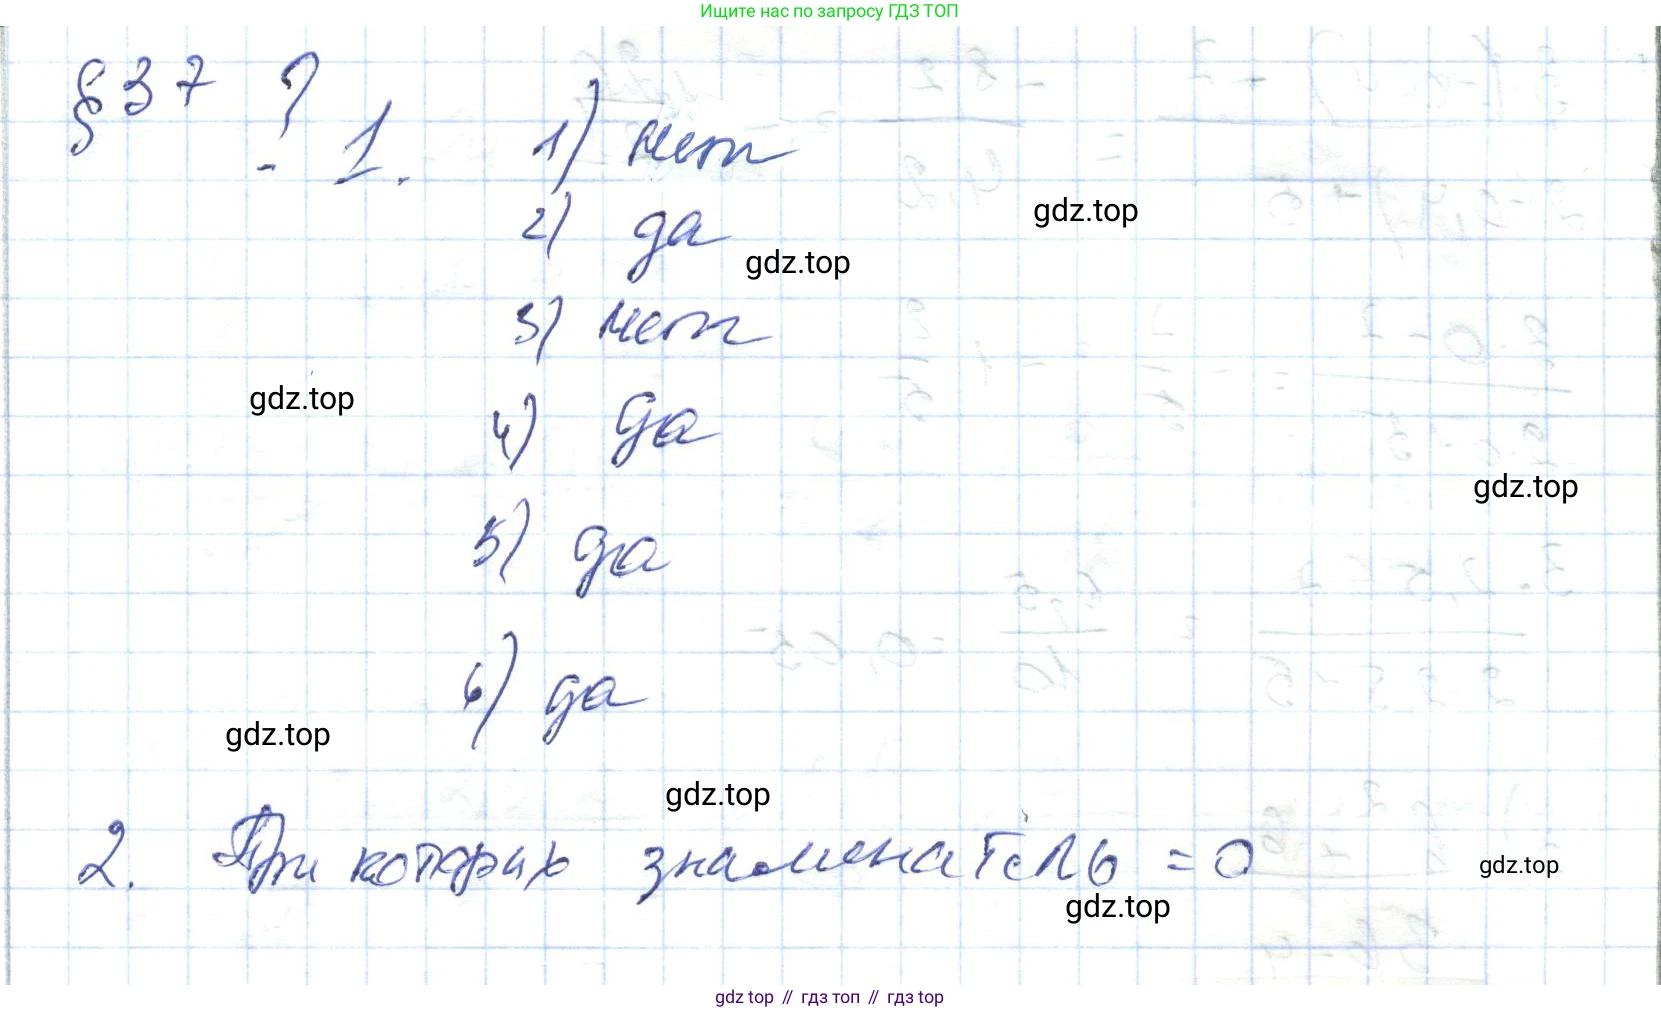 Ищите нас по запросу ГДЗ ТОП
§ 37 ? 1. 1) нет
gdz.top
2) да
gdz.top
3) нет
gdz.top
4) да
gdz.top
5) да
6) да
gdz.top
gdz.top
2. При которых знаменатель = 0
gdz.top
gdz.top
gdz top // гдз топ // гдз top